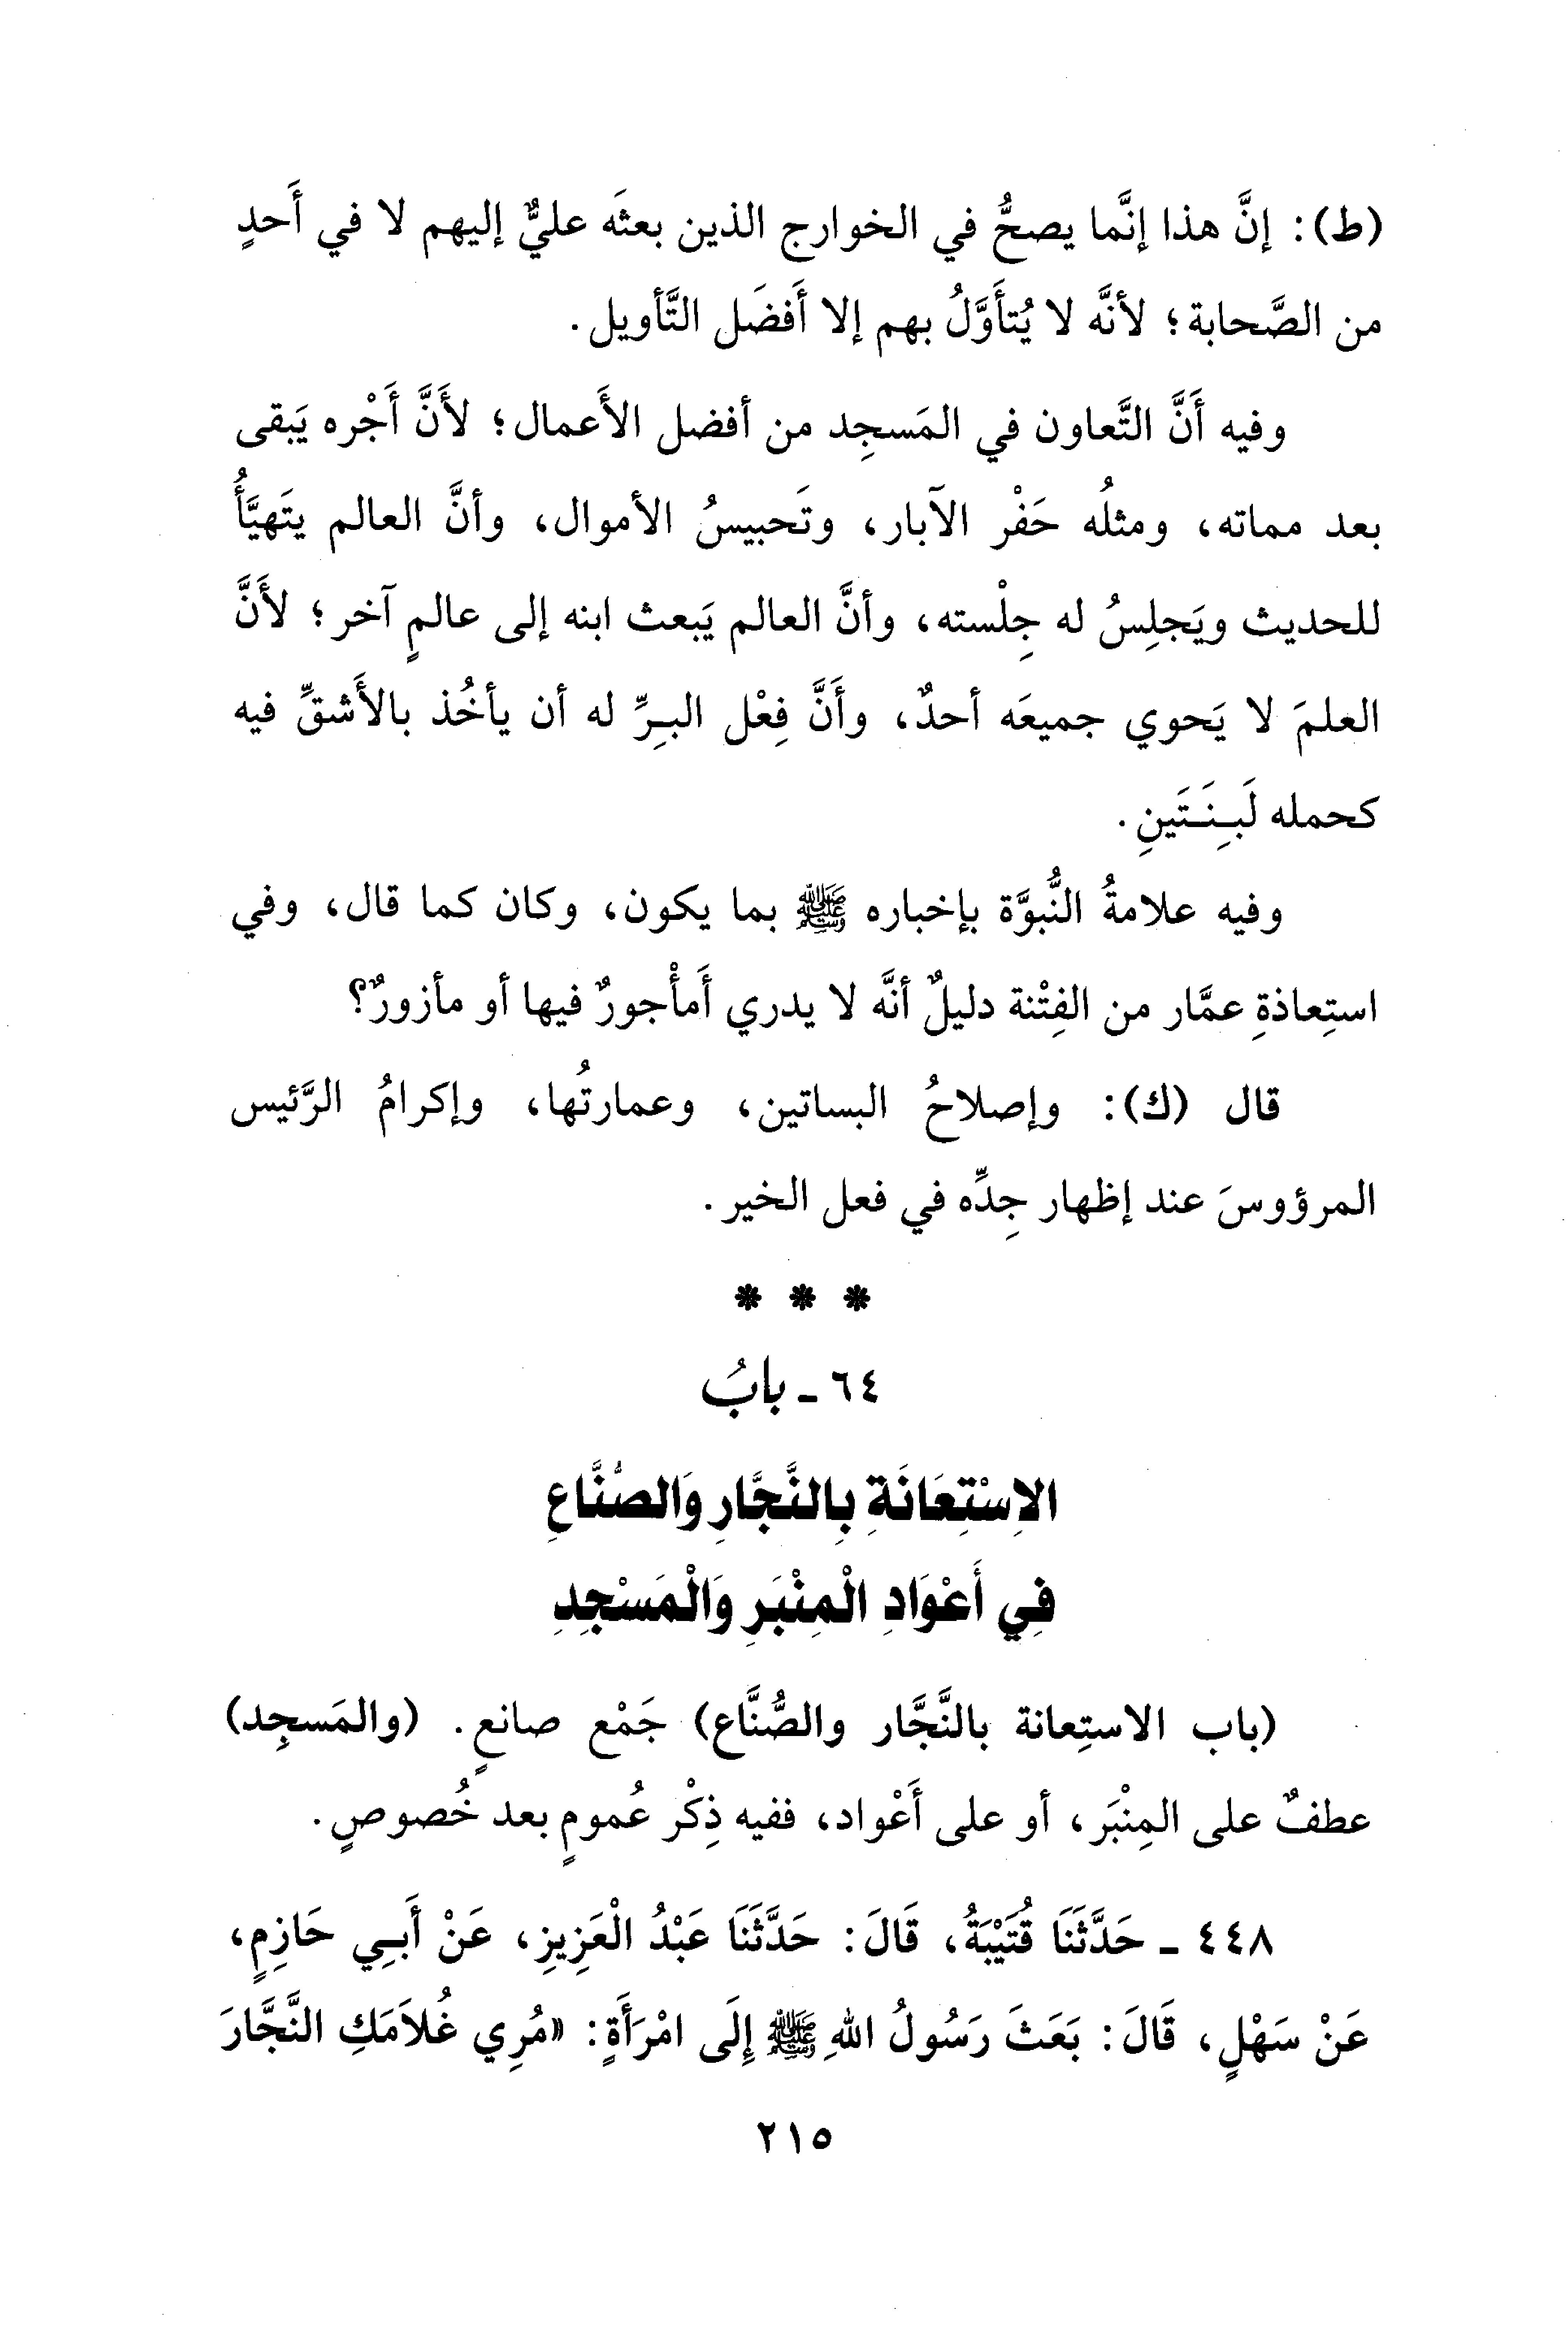 (ط): إنَّ هذا إنَّما يصحُّ في الخوارج الذين بعثَه عليٌّ إليهم لا في أَحدٍ
من الصَّحابة؛ لأنَّه لا يُتأَوَّلُ بهم إلا أَفضَل التَّأويل.
وفيه أَنَّ التَّعاون في المَسجِد من أفضل الأَعمال؛ لأَنَّ أَجْره يَبقى
بعد مماته، ومثلُه حَفْر الآبار، وتَحبيسُ الأموال، وأنَّ العالم يتَهيَّأُ
للحديث ويَجلِسُ له جِلْسته، وأنَّ العالم يَبعث ابنه إلى عالمٍ آخر؛ لأَنَّ
العلمَ لا يَحوي جميعَه أحدٌ، وأَنَّ فِعْل البـِرِّ له أن يأخُذ بالأَشقِّ فيه
كحمله لَبـِنَـتَينِ.
وفيه علامةُ النُّبوَّة بإخباره ﷺ بما يكون، وكان كما قال، وفي
استِعاذةِ عمَّار من الفِتْنة دليلٌ أنَّه لا يدري أَمأْجورٌ فيها أو مأزورٌ؟
قال (ك): وإصلاحُ البساتين، وعمارتُها، وإكرامُ الرَّئيس
المرؤوسَ عند إظهار جِدِّه في فعل الخير.
* * *
٦٤ ـ بابُ
الاِسْتِعَانَةِ بِالنَّجَّارِ وَالصُّنَّاعِ
فِي أَعْوَادِ الْمِنْبَرِ وَالْمَسْجِدِ
(باب الاستِعانة بالنَّجَّار والصُّنَّاع) جَمْع صانعٍ. (والمَسجِد)
عطفٌ على المِنْبَر، أو على أَعْواد، ففيه ذِكْر عُمومٍ بعد خُصوصٍ.
٤٤٨ ـ حَدَّثَنَا قُتَيْبَةُ، قَالَ: حَدَّثَنَا عَبْدُ الْعَزِيزِ، عَنْ أَبـِي حَازِمٍ،
عَنْ سَهْلٍ، قَالَ: بَعَثَ رَسُولُ اللهِ ﷺ إِلَى امْرَأَةٍ: «مُرِي غُلاَمَكِ النَّجَّارَ
٢١٥